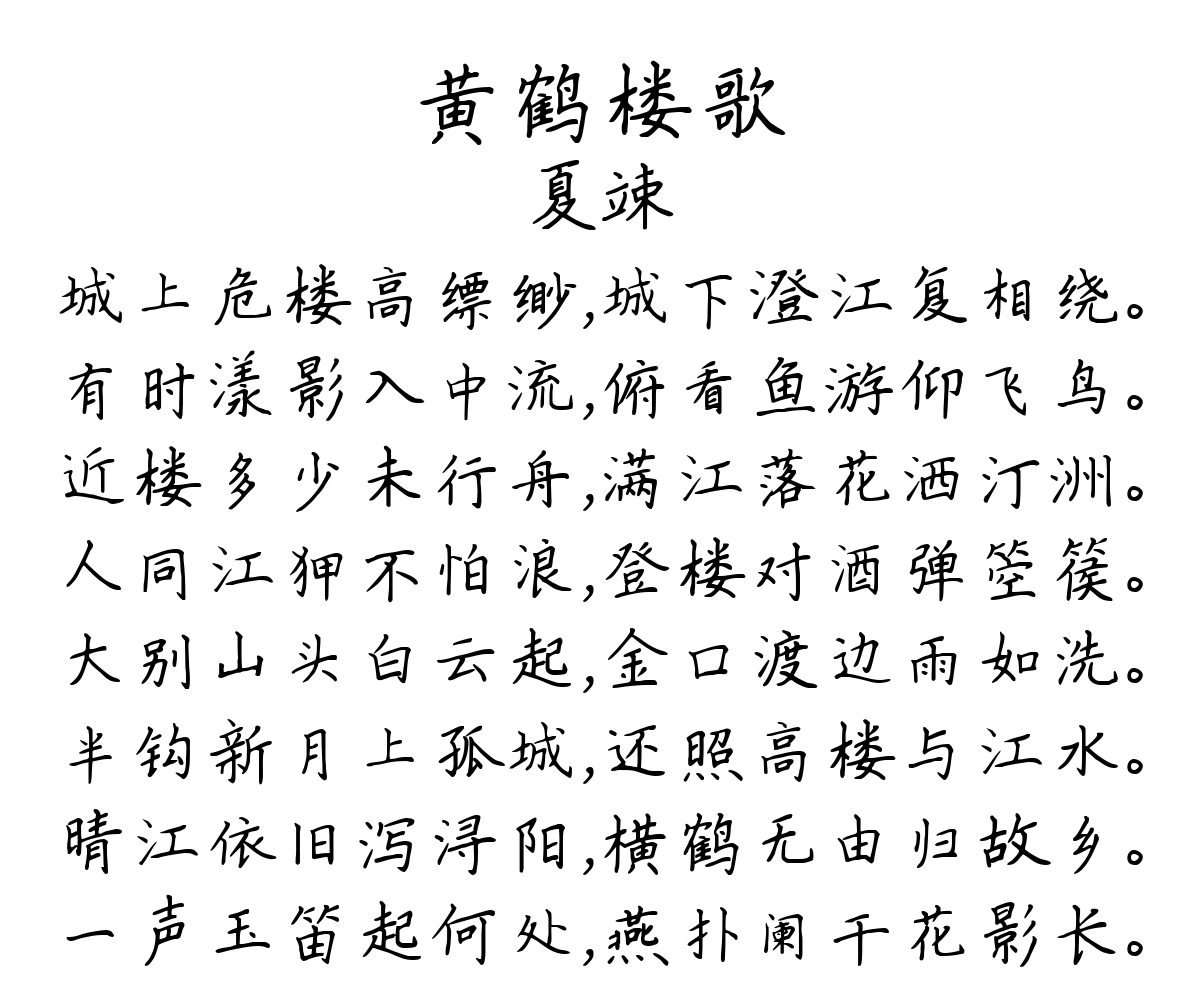 黄鹤楼歌
夏竦
城上危楼高缥缈,城下澄江复相绕。
有时漾影入中流,俯看鱼游仰飞鸟。
近楼多少未行舟,满江落花洒汀洲。
人同江狎不怕浪,登楼对酒弹箜篌。
大别山头白云起,金口渡边雨如洗。
半钩新月上孤城,还照高楼与江水。
晴江依旧泻浔阳,横鹤无由归故乡。
一声玉笛起何处,燕扑阑干花影长。